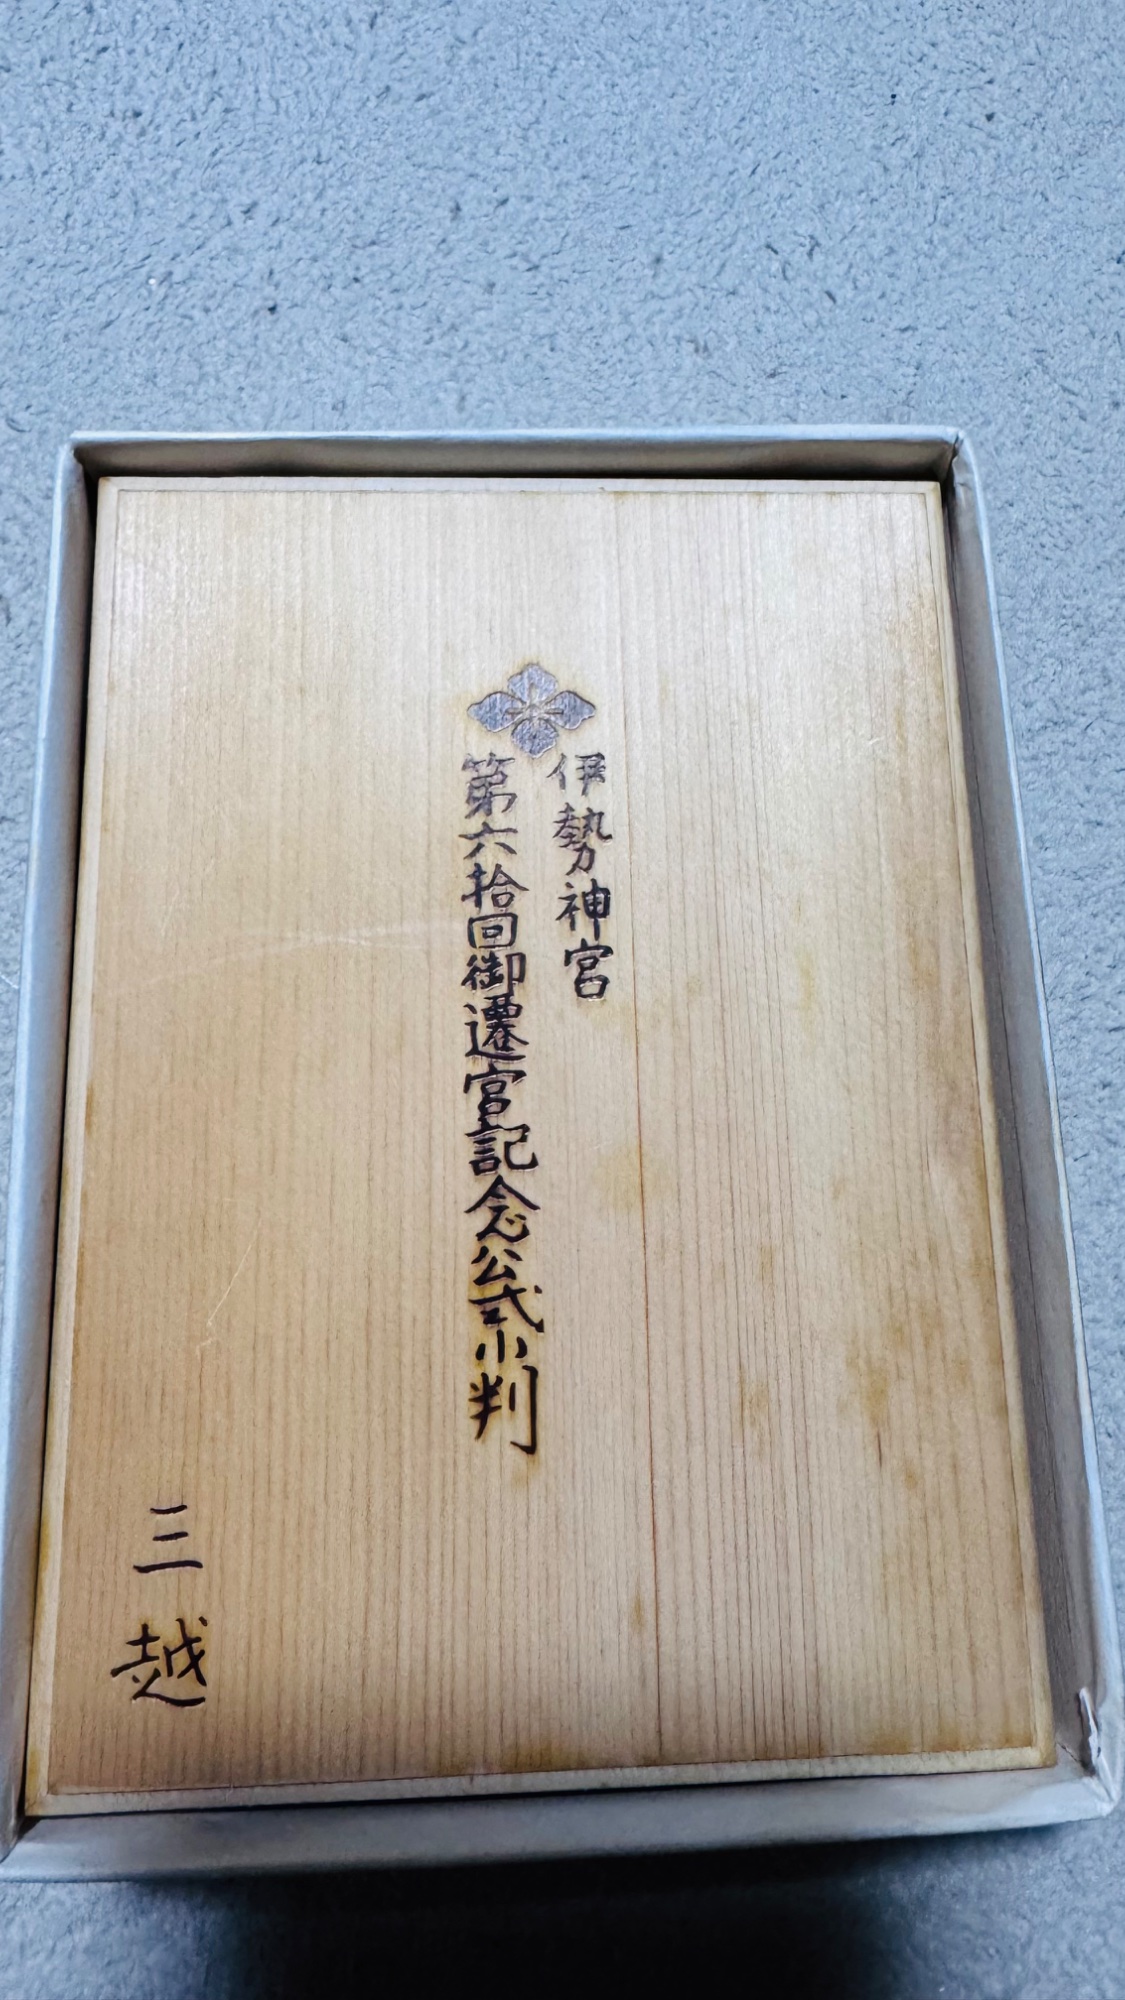 伊勢神宮
第六拾回御遷宮記念公式小判
三越